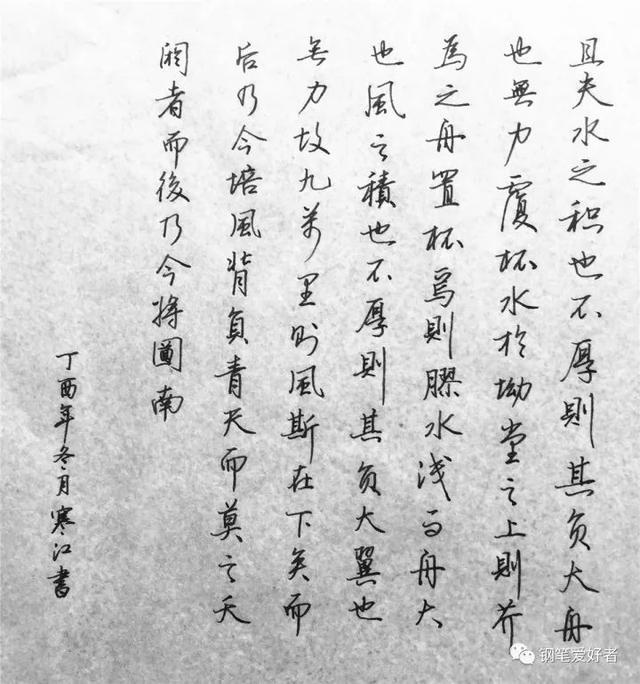 且夫水之积也不厚則其负大舟
也無力覆杯水於坳堂之上則芥
為之舟置杯焉則膠水浅而舟大
也風之積也不厚則其负大翼也
無力故九萬里则風斯在下矣而
后乃今培風背負青天而莫之夭
阏者而後乃今将圖南
丁酉年冬月寒江書
钢笔爱好者